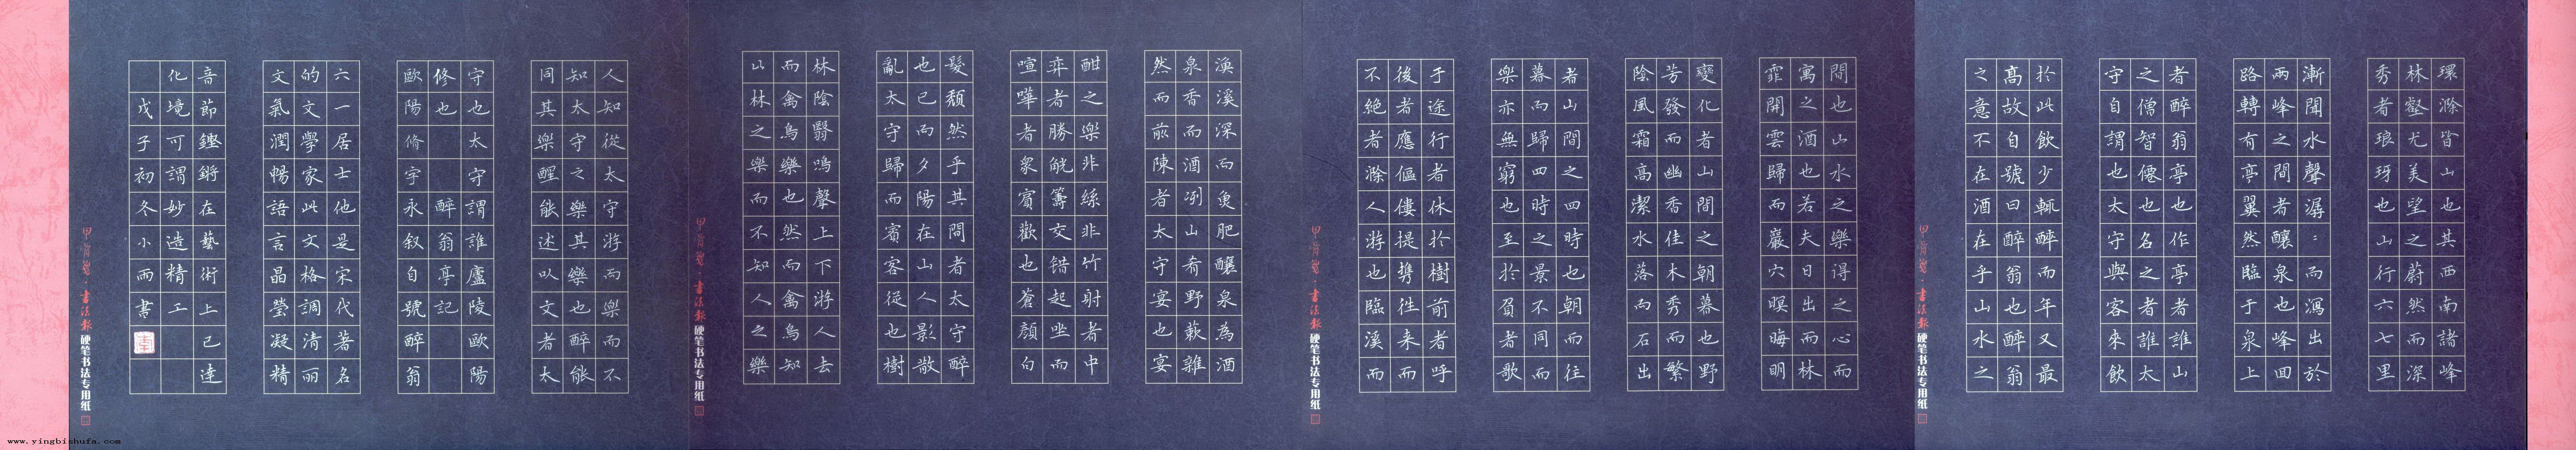 環滁皆山也其西南諸峰
林壑尤美望之蔚然而深
秀者琅玡也山行六七里
漸聞水聲潺〻而瀉出於
兩峰之間者釀泉也峰回
路轉有亭翼然臨于泉上
者醉翁亭也作亭者誰山
之僧智僊也名之者誰太
守自謂也太守與客來飲
於此飲少輒醉而年又最
高故自號曰醉翁也醉翁
之意不在酒在乎山水之
間也山水之樂得之心而
寓之酒也若夫日出而林
霏開雲歸而巖穴暝晦明
變化者山間之朝暮也野
芳發而幽香佳木秀而繁
陰風霜高潔水落而石出
者山間之四時也朝而往
暮而歸四時之景不同而
樂亦無窮也至於負者歌
于途行者休於樹前者呼
後者應傴僂提攜往来而
不絶者滁人游也臨溪而
漁溪深而魚肥釀泉為酒
泉香而酒洌山肴野蔌雜
然而前陳者太守宴也宴
酣之樂非絲非竹射者中
弈者勝觥籌交错起坐而
喧嘩者衆賓歡也蒼顔白
髮頹然乎其間者太守醉
也已而夕陽在山人影散
亂太守歸而賓客從也樹
林陰翳鳴聲上下游人去
而禽鳥樂也然而禽鳥知
山林之樂而不知人之樂
人知從太守游而樂而不
知太守之樂其樂也醉能
同其樂醒能述以文者太
守也太守謂誰廬陵歐陽
修也 醉翁亭記
歐陽脩字永叙自號醉翁
六一居士他是宋代著名
的文學家此文格調清丽
文氣潤暢語言晶瑩凝精
音節鏗鏘在藝術上已達
化境可謂妙造精工
戊子初冬小雨書
甲骨笺·書法報硬笔书法专用纸
甲骨笺·書法報硬笔书法专用纸
甲骨笺·書法報硬笔书法专用纸
甲骨笺·書法報硬笔书法专用纸
www.yingbishufa.com